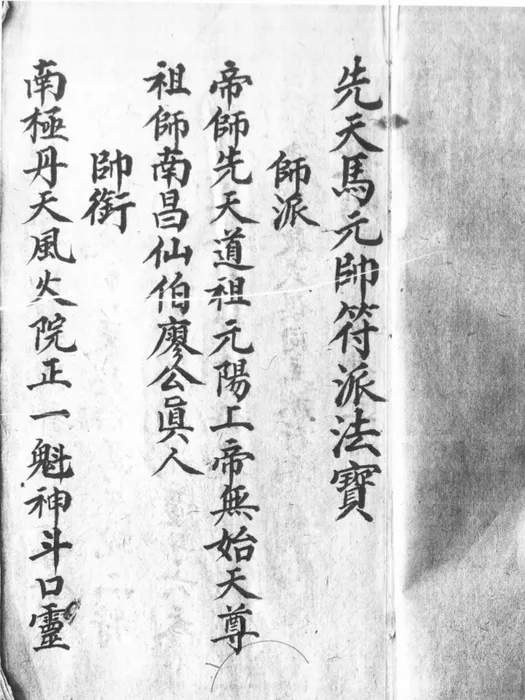 先天馬元帥符派法寶
師派
帝師先天道祖元陽上帝無始天尊
祖師南昌仙伯廖公眞人
帥銜
南極丹天風火院正一魁神斗口靈